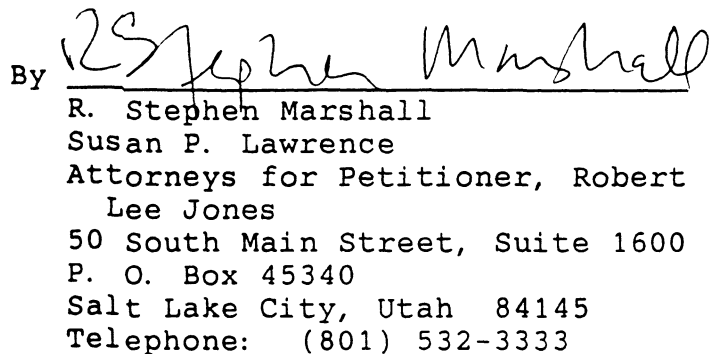 By R Stephen Marshall
R. Stephen Marshall
Susan P. Lawrence
Attorneys for Petitioner, Robert
Lee Jones
50 South Main Street, Suite 1600
P. O. Box 45340
Salt Lake City, Utah 84145
Telephone: (801) 532-3333